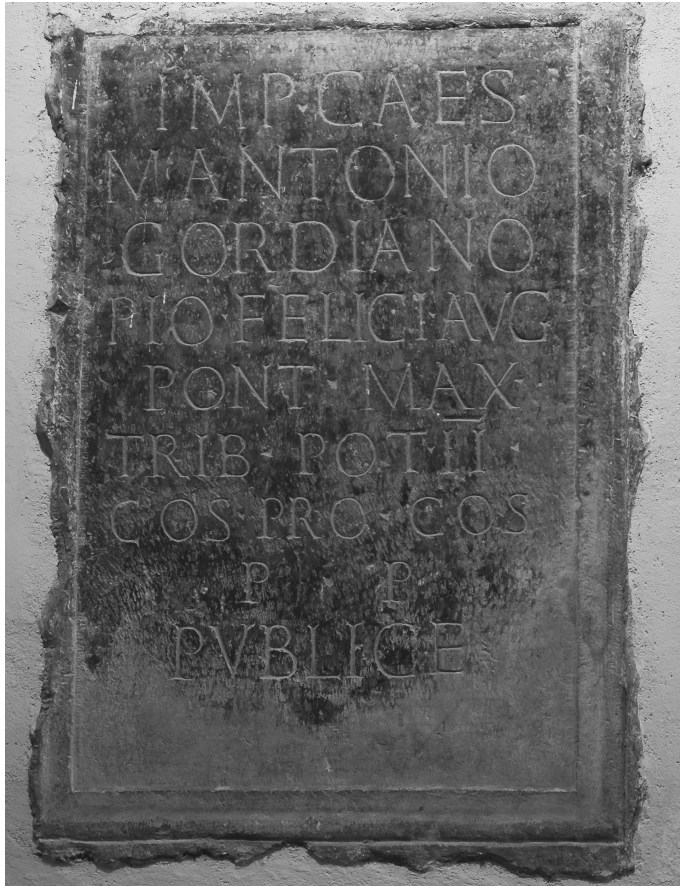 IMP·CAES
M·ANTONIO
GORDIANO
PIO·FELICI·AVG
PONT·MAX
TRIB·POT·II·
COS·PRO·COS
P·P
PVBLICE